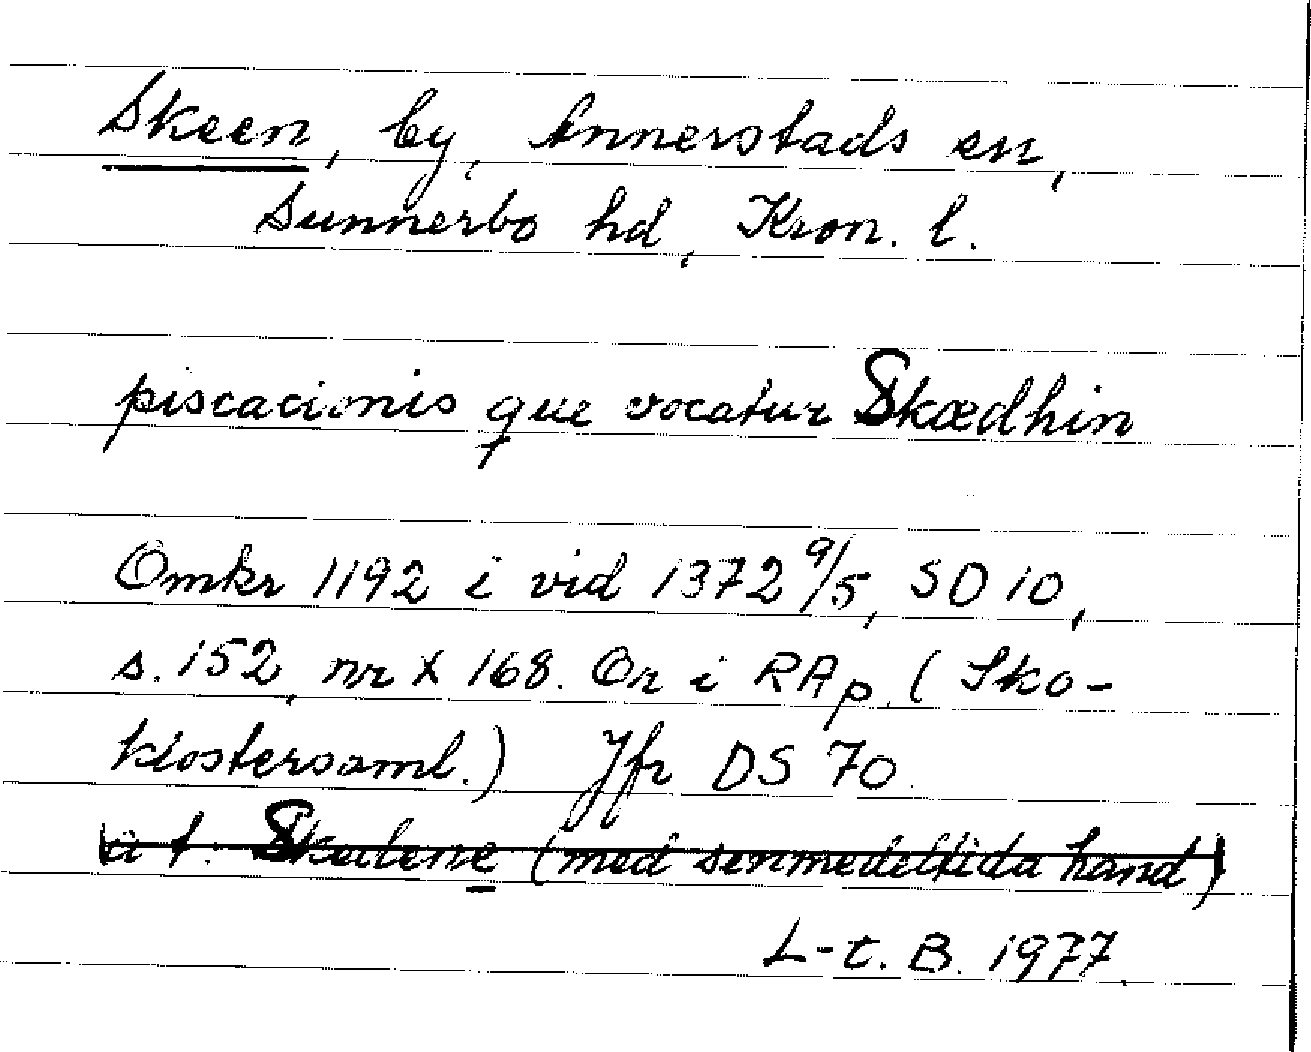 Skeen, by, Annerstads sn,
Sunnerbo hd, Kron. l.
piscacionis que vocatur Skædhin
Omkr 1192 i vid 1372 9/5, SD 10,
s. 152, nr X 168. Or i RAp. (Sko-
klostersaml.) Jfr DS 70.
(med senmedeltida hand)
L-t. B. 1977.